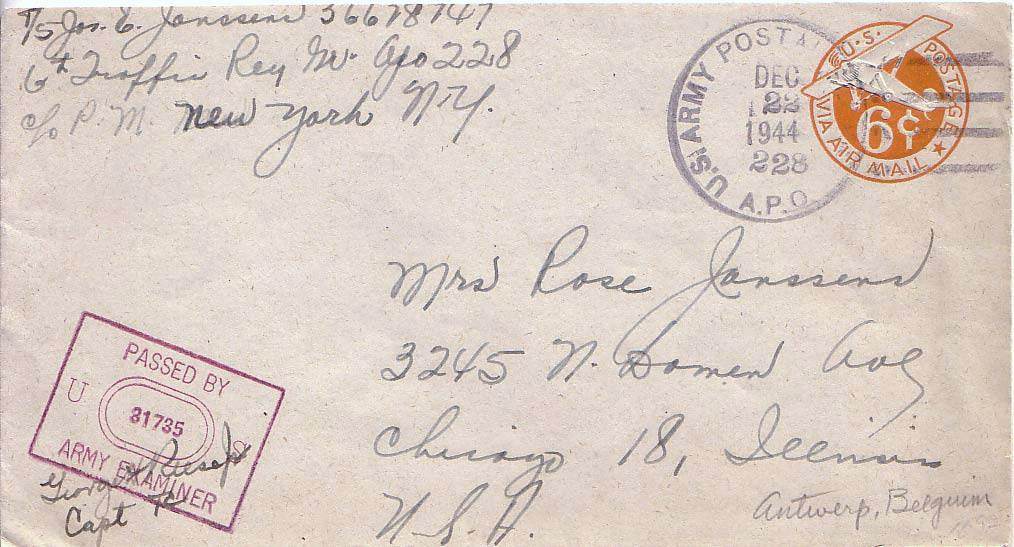 T/5 Jos. E. Janssens 36678747
6th Traffic Reg Gr. Apo 228
c/o P.M. New York N.Y.
U.S. ARMY POSTAL
DEC
22
1944
228
A.P.O.
U.S. POSTAGE
6¢
VIA AIR MAIL
Mrs Rose Janssens
3245 N. Damen Ave
Chicago 18, Illinois
U.S.A.
Antwerp, Belguim
PASSED BY
U 31735 S
ARMY EXAMINER
George
Capt TC